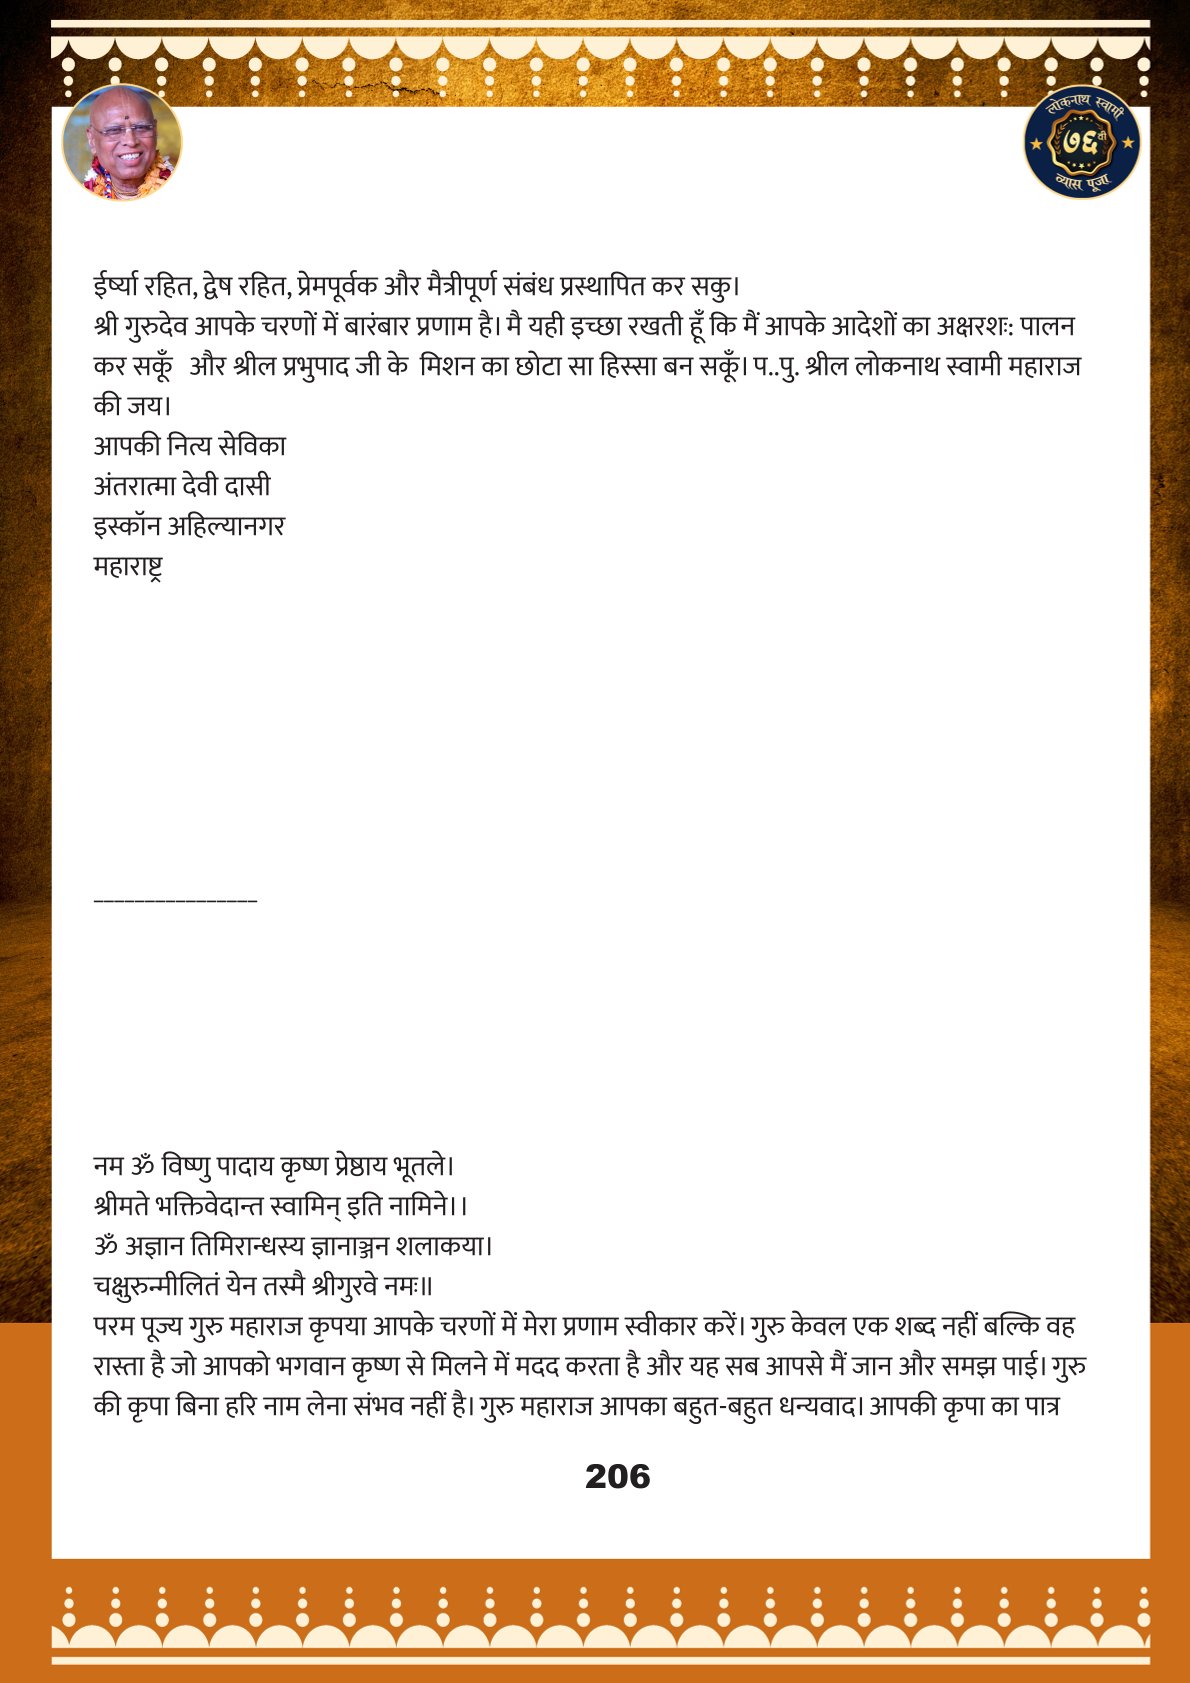 लोकनाथ स्वामी
७६वी
व्यास पूजा
ईर्ष्या रहित, द्वेष रहित, प्रेमपूर्वक और मैत्रीपूर्ण संबंध प्रस्थापित कर सकु।
श्री गुरुदेव आपके चरणों में बारंबार प्रणाम है। मै यही इच्छा रखती हूँ कि मैं आपके आदेशों का अक्षरशः: पालन
कर सकूँ और श्रील प्रभुपाद जी के मिशन का छोटा सा हिस्सा बन सकूँ। प..पु. श्रील लोकनाथ स्वामी महाराज
की जय।
आपकी नित्य सेविका
अंतरात्मा देवी दासी
इस्कॉन अहिल्यानगर
महाराष्ट्र
________________
नम ॐ विष्णु पादाय कृष्ण प्रेष्ठाय भूतले।
श्रीमते भक्तिवेदान्त स्वामिन् इति नामिने।।
ॐ अज्ञान तिमिरान्धस्य ज्ञानाञ्जन शलाकया।
चक्षुरुन्मीलितं येन तस्मै श्रीगुरवे नमः॥
परम पूज्य गुरु महाराज कृपया आपके चरणों में मेरा प्रणाम स्वीकार करें। गुरु केवल एक शब्द नहीं बल्कि वह
रास्ता है जो आपको भगवान कृष्ण से मिलने में मदद करता है और यह सब आपसे मैं जान और समझ पाई। गुरु
की कृपा बिना हरि नाम लेना संभव नहीं है। गुरु महाराज आपका बहुत-बहुत धन्यवाद। आपकी कृपा का पात्र
206